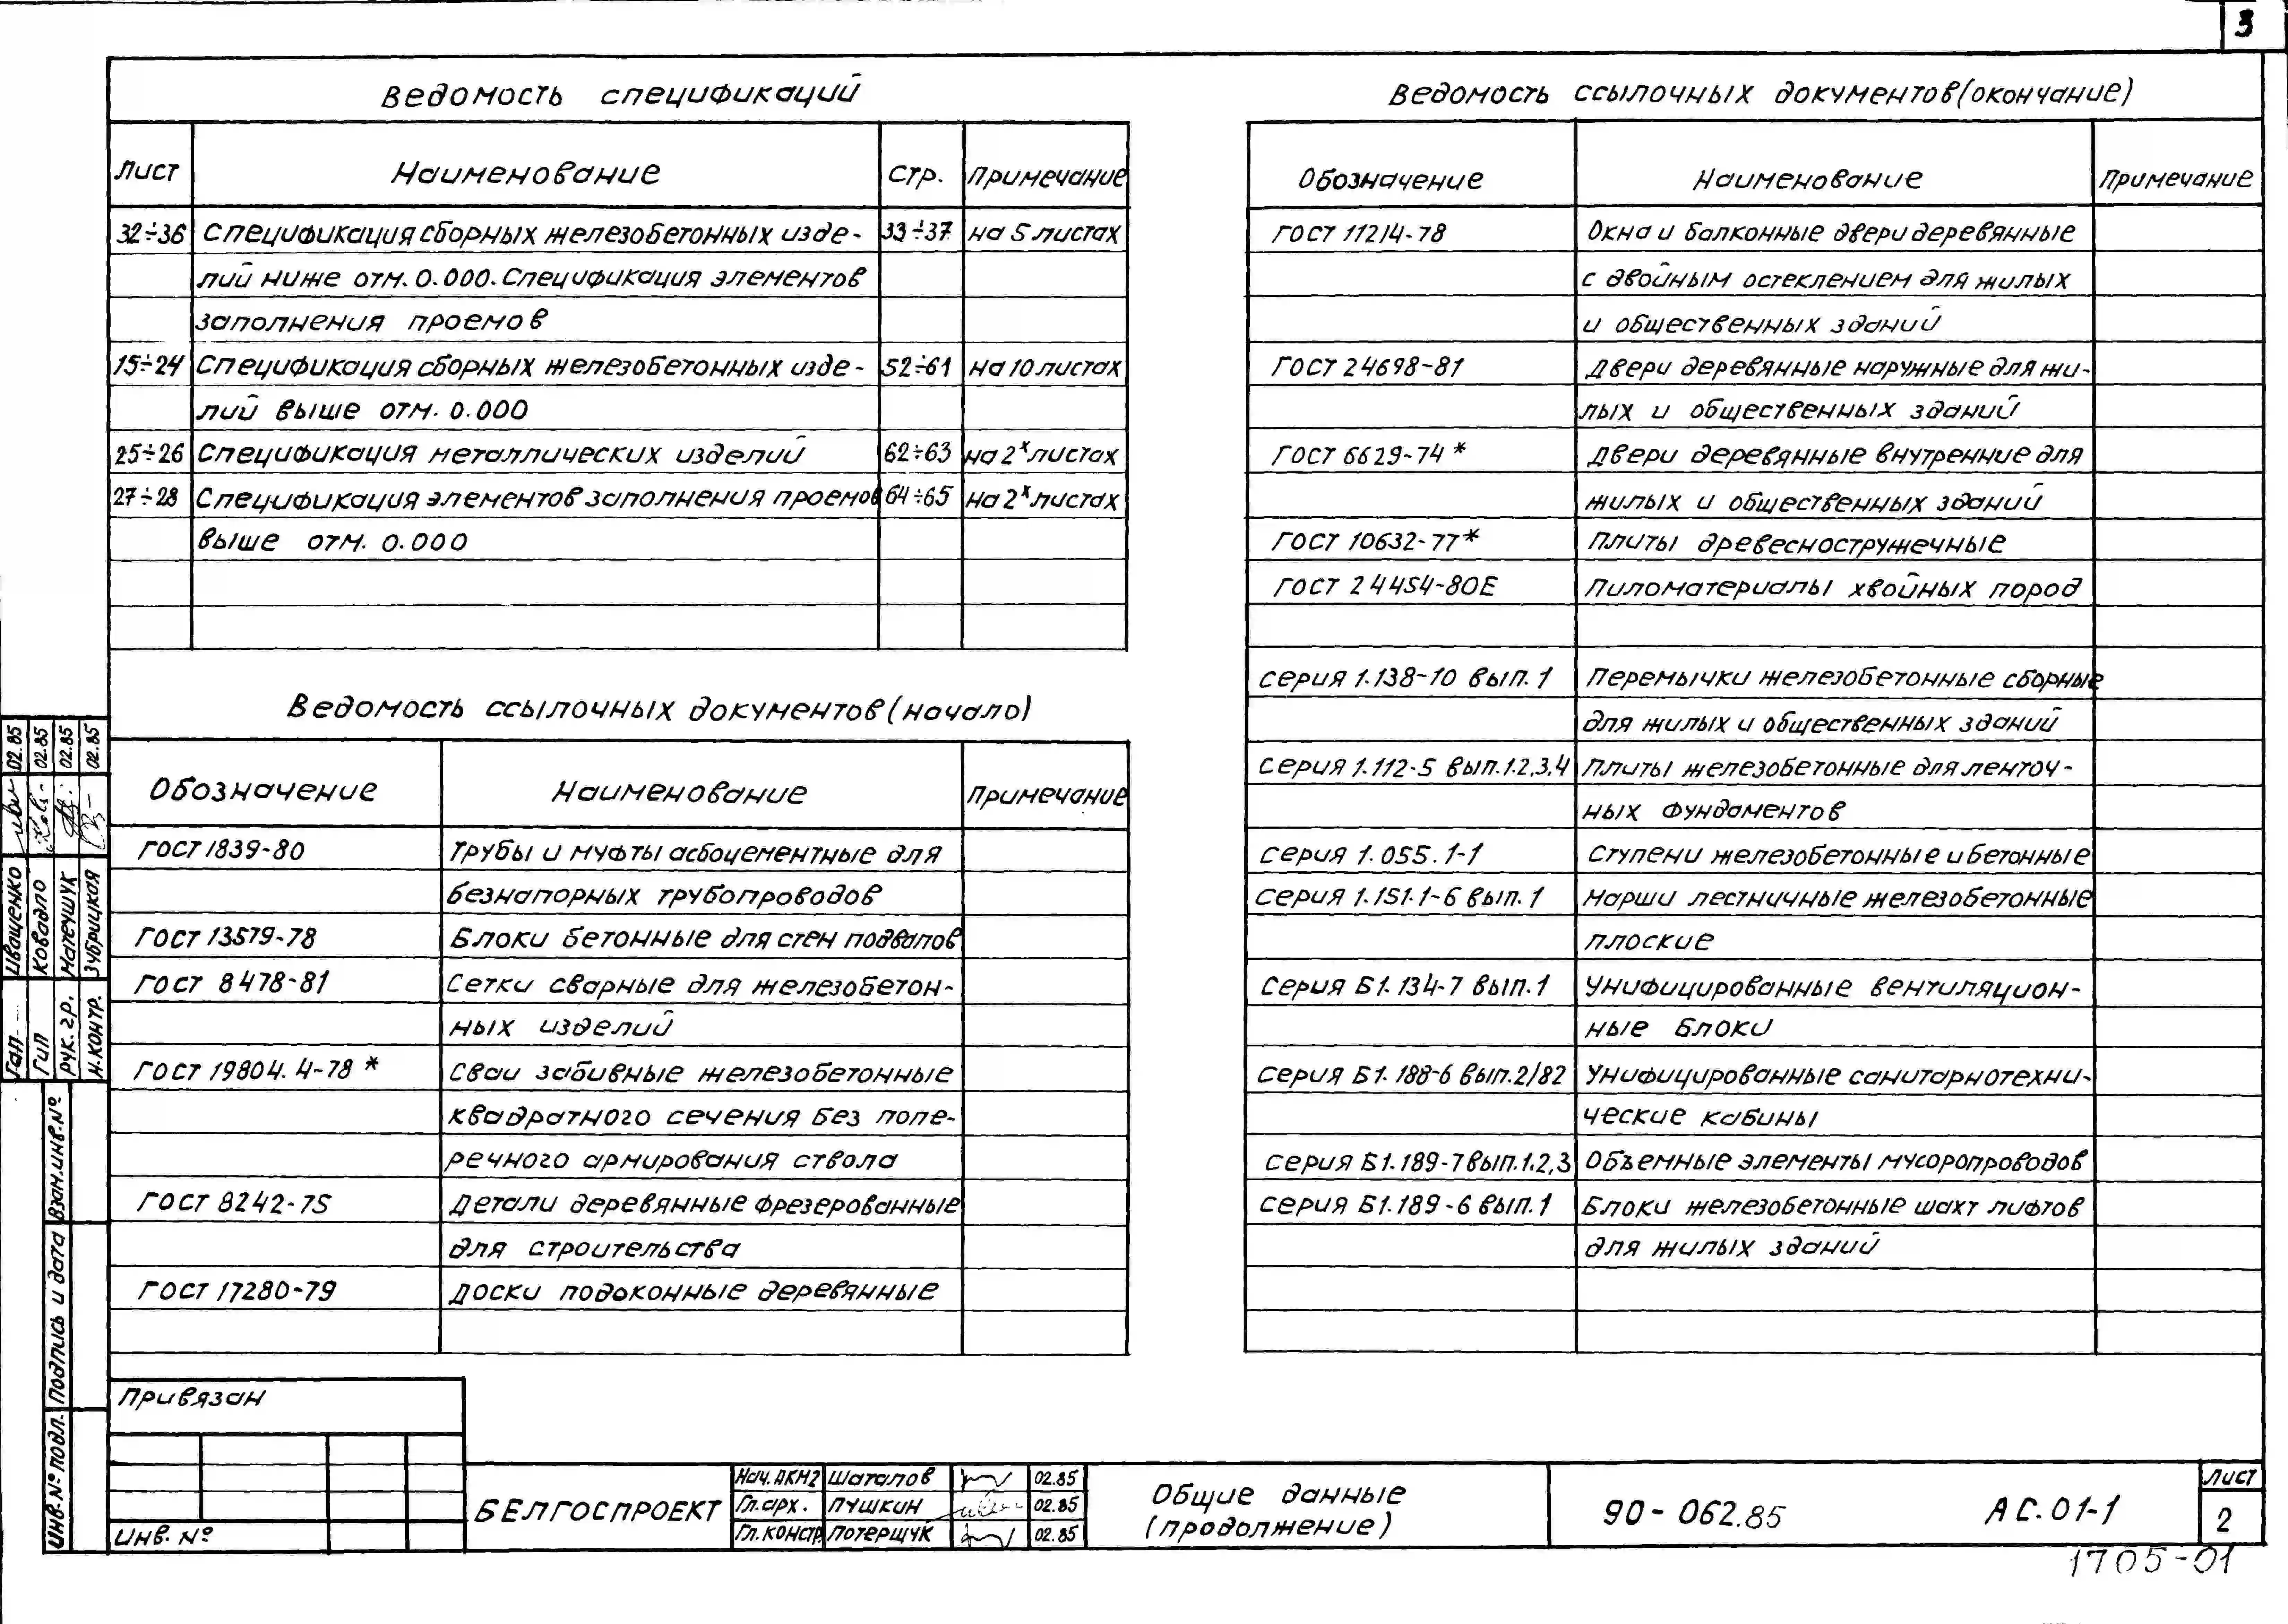 3
Ведомость спецификаций
Лист Наименование Стр. Примечание
32÷36 Спецификация сборных железобетонных изде- 33÷37 на 5 листах
лий ниже отм. 0.000. Спецификация элементов
заполнения проемов
15÷24 Спецификация сборных железобетонных изде- 52÷61 на 10 листах
лий выше отм. 0.000
25÷26 Спецификация металлических изделий 62÷63 на 2х листах
27÷28 Спецификация элементов заполнения проемов 64÷65 на 2х листах
выше отм. 0.000
Ведомость ссылочных документов (начало)
Обозначение Наименование Примечание
ГОСТ 1839-80 Трубы и муфты асбоцементные для
безнапорных трубопроводов
ГОСТ 13579-78 Блоки бетонные для стен подвалов
ГОСТ 8478-81 Сетки сварные для железобетон-
ных изделий
ГОСТ 19804.4-78 * Сваи забивные железобетонные
квадратного сечения без попе-
речного армирования ствола
ГОСТ 8242-75 Детали деревянные фрезерованные
для строительства
ГОСТ 17280-79 Доски подоконные деревянные
Ведомость ссылочных документов (окончание)
Обозначение Наименование Примечание
ГОСТ 11214-78 Окна и балконные двери деревянные
с двойным остеклением для жилых
и общественных зданий
ГОСТ 24698-81 Двери деревянные наружные для жи-
лых и общественных зданий
ГОСТ 6629-74 * Двери деревянные внутренние для
жилых и общественных зданий
ГОСТ 10632-77* Плиты древесностружечные
ГОСТ 24454-80Е Пиломатериалы хвойных пород
серия 1.138-10 вып. 1 Перемычки железобетонные сборные
для жилых и общественных зданий
серия 1.112-5 вып.1.2.3.4 Плиты железобетонные для ленточ-
ных фундаментов
серия 1.055.1-1 Ступени железобетонные и бетонные
серия 1.151.1-6 вып. 1 Марши лестничные железобетонные
плоские
серия Б1.134-7 вып.1 Унифицированные вентиляцион-
ные блоки
серия Б1.188-6 вып.2/82 Унифицированные санитарнотехни-
ческие кабины
серия Б1.189-7 вып.1.2,3 Объемные элементы мусоропроводов
серия Б1.189-6 вып. 1 Блоки железобетонные шахт лифтов
для жилых зданий
Гап Иващенко 02.85
Гип Ковадло 02.85
Рук. гр. Матечшук 02.85
Н.контр. Зубрицкая 02.85
Взам.инв.№
Подпись и дата
Инв.№ подл.
Привязан
Инв. №
БЕЛГОСПРОЕКТ
Нач. АКМ2 Шаталов 02.85
Гл.арх. Пушкин 02.85
Гл.констр. Потерщук 02.85
Общие данные
(продолжение)
90-062.85 АС.01-1
Лист
2
1705-01